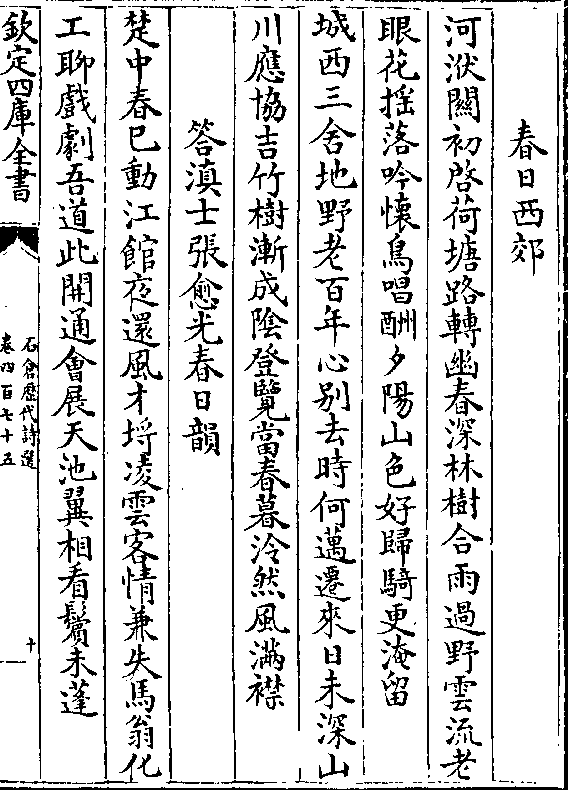 春日西郊
河洑關初啓荷塘路轉幽春深林樹合雨過野雲流老
眼花揺落吟懷鳥唱酬夕陽山色好歸騎更淹留
城西三舍地野老百年心别去時何邁遷來日未深山
川應協吉竹樹漸成陰登覽當春暮泠然風滿襟
答滇士張愈光春日韻
楚中春已動江館夜還風才埒凌雲客情兼失馬翁化
工聊戲劇吾道此開通會展天池翼相看鬢未蓬
欽定四庫全書
石倉歴代詩選
卷四百七十五
十